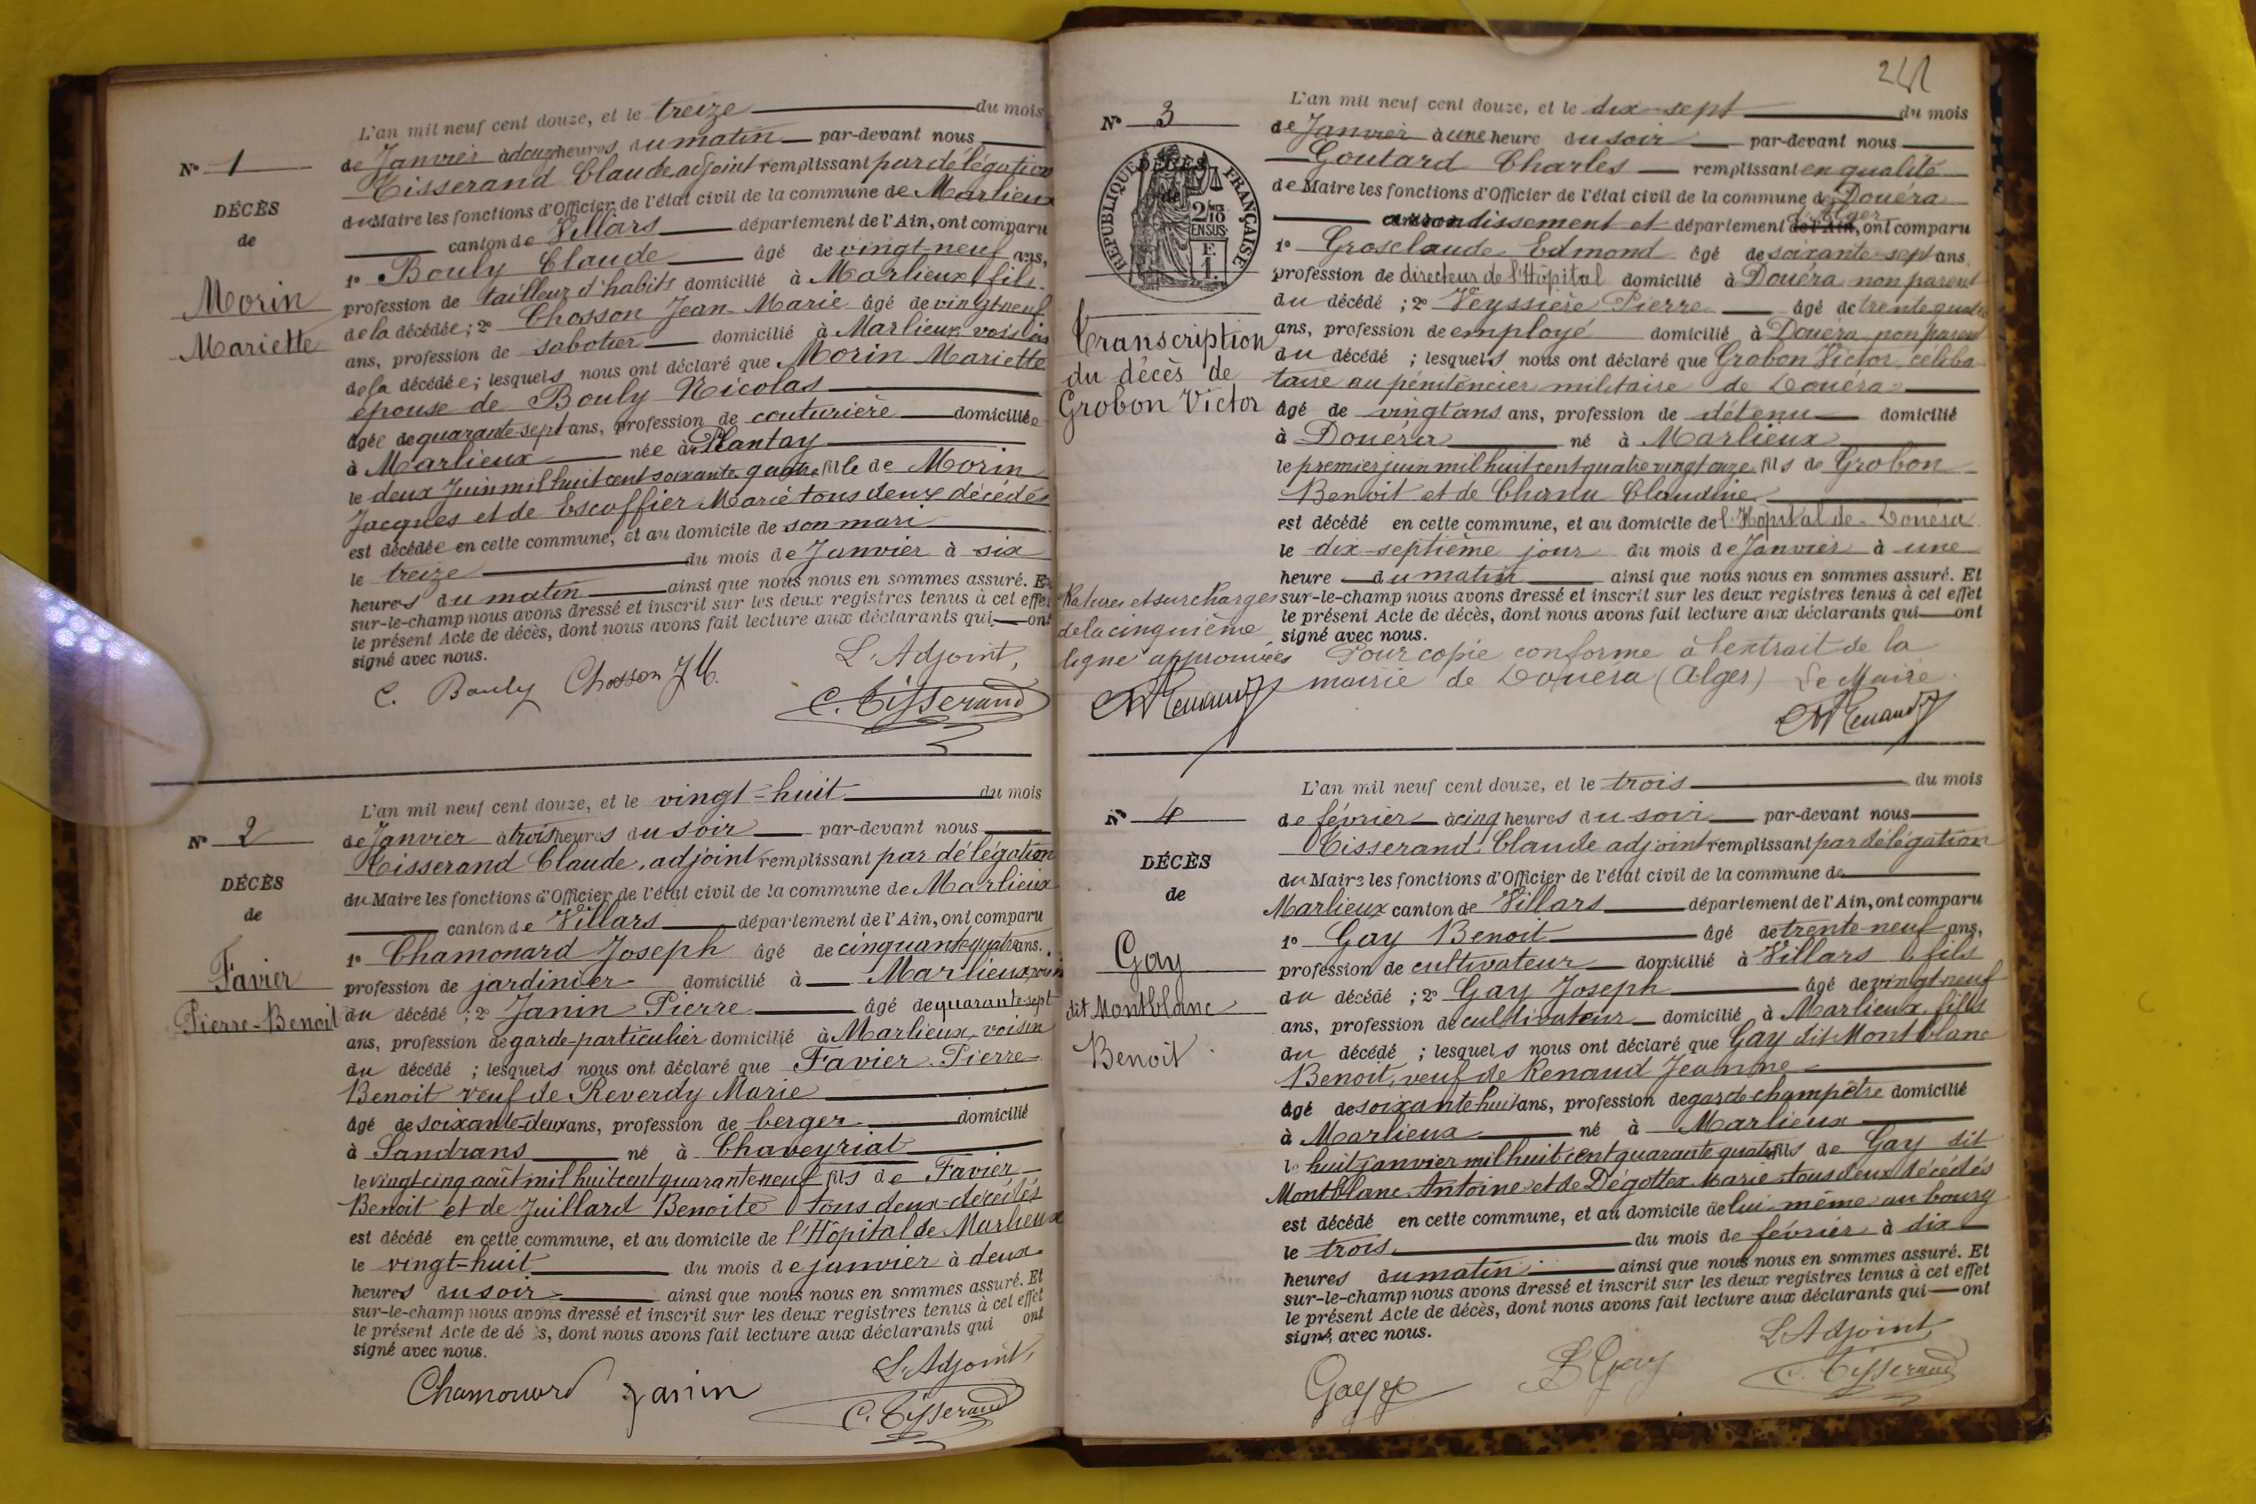 L'an mil neuf cent douze, et le treize du mois
N° 1
de Janvier à douze heures du matin par-devant nous
Tisserand Claude adjoint remplissant par délégation
DÉCÈS
du Maire les fonctions d'Officier de l'état civil de la commune de Marlieux
de
canton de Villars département de l'Ain, ont comparu
1° Bouly Claude âgé de vingt neuf ans,
Morin
profession de tailleur d'habits domicilié à Marlieux, fils
Mariette
de la décédée; 2° Chosson Jean-Marie âgé de vingt-neuf
ans, profession de sabotier domicilié à Marlieux voisin
de la décédée; lesquels nous ont déclaré que Morin Mariette
épouse de Bouly Nicolas
âgée de quarante-sept ans, profession de couturière domiciliée
à Marlieux née à Plantay
le deux Juin mil huit cent soixante quatre fille de Morin
Jacques et de Escoffier Marie tous deux décédés
est décédée en cette commune, et au domicile de son mari
le treize du mois de Janvier à six
heures du matin ainsi que nous nous en sommes assuré. Et
sur-le-champ nous avons dressé et inscrit sur les deux registres tenus à cet effet
le présent Acte de décès, dont nous avons fait lecture aux déclarants qui ont
signé avec nous.
L'Adjoint,
C. Bouly Chosson J M. C. Tisserand
L'an mil neuf cent douze, et le vingt-huit du mois
N° 2
de Janvier à trois heures du soir par-devant nous
Tisserand Claude, adjoint remplissant par délégation
DÉCÈS
du Maire les fonctions d'Officier de l'état civil de la commune de Marlieux
de
canton de Villars département de l'Ain, ont comparu
1° Chamonard Joseph âgé de cinquante-quatre ans.
Favier
profession de jardinier domicilié à Marlieux, voisin
Pierre-Benoit
du décédé ; 2° Janin Pierre âgé de quarante-sept
ans, profession de garde-particulier domicilié à Marlieux, voisin
du décédé ; lesquels nous ont déclaré que Favier Pierre
Benoit veuf de Reverdy Marie
âgé de soixante-deux ans, profession de berger domicilié
à Sandrans né à Chaveyriat
le vingt cinq août mil huit cent quarante neuf fils de Favier
Benoit et de Juillard Benoite tous deux décédés
est décédé en cette commune, et au domicile de l'Hôpital de Marlieux
le vingt-huit du mois de janvier à deux
heures du soir ainsi que nous nous en sommes assuré. Et
sur-le-champ nous avons dressé et inscrit sur les deux registres tenus à cet effet
le présent Acte de dé s, dont nous avons fait lecture aux déclarants qui ont
signé avec nous.
L'Adjoint,
Chamonard Janin C. Tisserand
L'an mil neuf cent douze, et le dix-sept du mois
N° 3
de Janvier à une heure du soir par-devant nous
Goutard Charles remplissant en qualité
RÉPUBLIQUE FRANÇAISE
DÉCÈS
de
2/10 EN SUS
F.
1.
de Maire les fonctions d'Officier de l'état civil de la commune de Douéra
d'Alger
arrondissement et département de l'Ain, ont comparu
1° Grosclaude Edmond âgé de soixante-sept ans,
profession de directeur de l'Hôpital domicilié à Douéra non parent
du décédé ; 2° Veyssière Pierre âgé de trente quatre
ans, profession de employé domicilié à Douéra non parent
Transcription
du décès de
Grobon Victor
du décédé ; lesquels nous ont déclaré que Grobon Victor, céliba
taire au pénitencier militaire de Douéra
âgé de vingt ans ans, profession de détenu domicilié
à Douéra né à Marlieux
le premier juin mil huit cent quatre vingt onze fils de Grobon
Benoit et de Chanu Claudine
est décédé en cette commune, et au domicile de l'Hôpital de Douéra
le dix-septième jour du mois de Janvier à une
heure du matin ainsi que nous nous en sommes assuré. Et
sur-le-champ nous avons dressé et inscrit sur les deux registres tenus à cet effet
le présent Acte de décès, dont nous avons fait lecture aux déclarants qui ont
signé avec nous.
Ratures et surcharges
de la cinquième
ligne approuvées
Pour copie conforme à l'extrait de la
mairie de Douéra (Alger) Le Maire
L'an mil neuf cent douze, et le trois du mois
N° 4
de février à cinq heures du soir par-devant nous
Tisserand Claude adjoint remplissant par délégation
DÉCÈS
du Maire les fonctions d'Officier de l'état civil de la commune de
de
Marlieux canton de Villars département de l'Ain, ont comparu
1° Gay Benoit âgé de trente-neuf ans,
Gay
profession de cultivateur domicilié à Villars fils
dit Montblanc
du décédé ; 2° Gay Joseph âgé de vingt-neuf
ans, profession de cultivateur domicilié à Marlieux, fils
Benoit
du décédé ; lesquels nous ont déclaré que Gay dit Montblanc
Benoit, veuf de Renaud Jeanne
âgé de soixante huit ans, profession de garde champêtre domicilié
à Marlieux né à Marlieux
le huit janvier mil huit cent quarante quatre fils de Gay dit
Montblanc Antoine et de Dégottex Marie tous deux décédés
est décédé en cette commune, et au domicile de lui même au bourg
le trois du mois de février à dix
heures du matin ainsi que nous nous en sommes assuré. Et
sur-le-champ nous avons dressé et inscrit sur les deux registres tenus à cet effet
le présent Acte de décès, dont nous avons fait lecture aux déclarants qui ont
signé avec nous.
L'Adjoint
Gay B Gay C. Tisserand